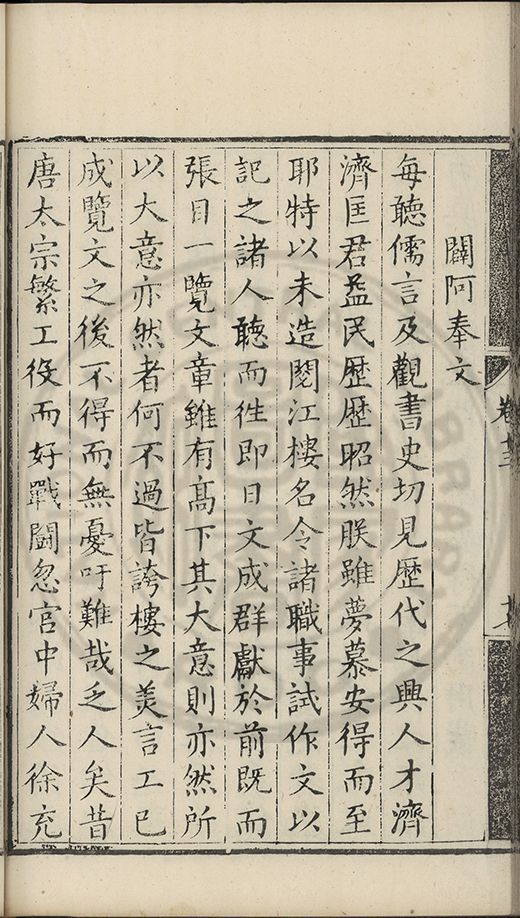 卷十三
闢阿奉文
每聽儒言及觀書史切見歷代之興人才濟
濟匡君益民歷歷昭然朕雖夢慕安得而至
耶特以未造閱江樓名令諸職事試作文以
記之諸人聽而徃即日文成群獻於前既而
張目一覽文章雖有高下其大意則亦然所
以大意亦然者何不過皆誇樓之美言工已
成覽文之後不得而無憂吁難哉乏人矣昔
唐太宗繁工役而好戰鬪忽宮中婦人徐充